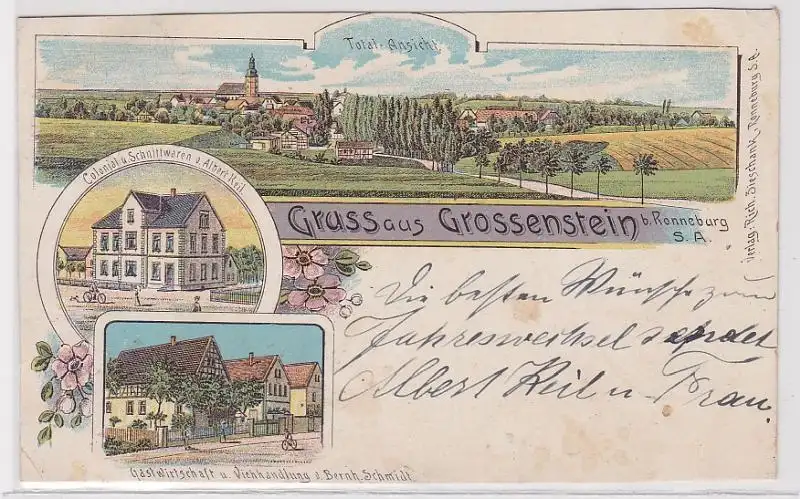 Total-Ansicht
Colonial u. Schnittwaren v. Albert Keil.
Gruss aus Grossenstein b. Ronneburg
S. A.
Verlag. Rich. Sieschank, Ronneburg S. A.
Die besten Wünsche zum
Jahreswechsel sendet
Albert Keil u. Frau.
Gastwirtschaft u. Viehhandlung v. Bernh. Schmidt